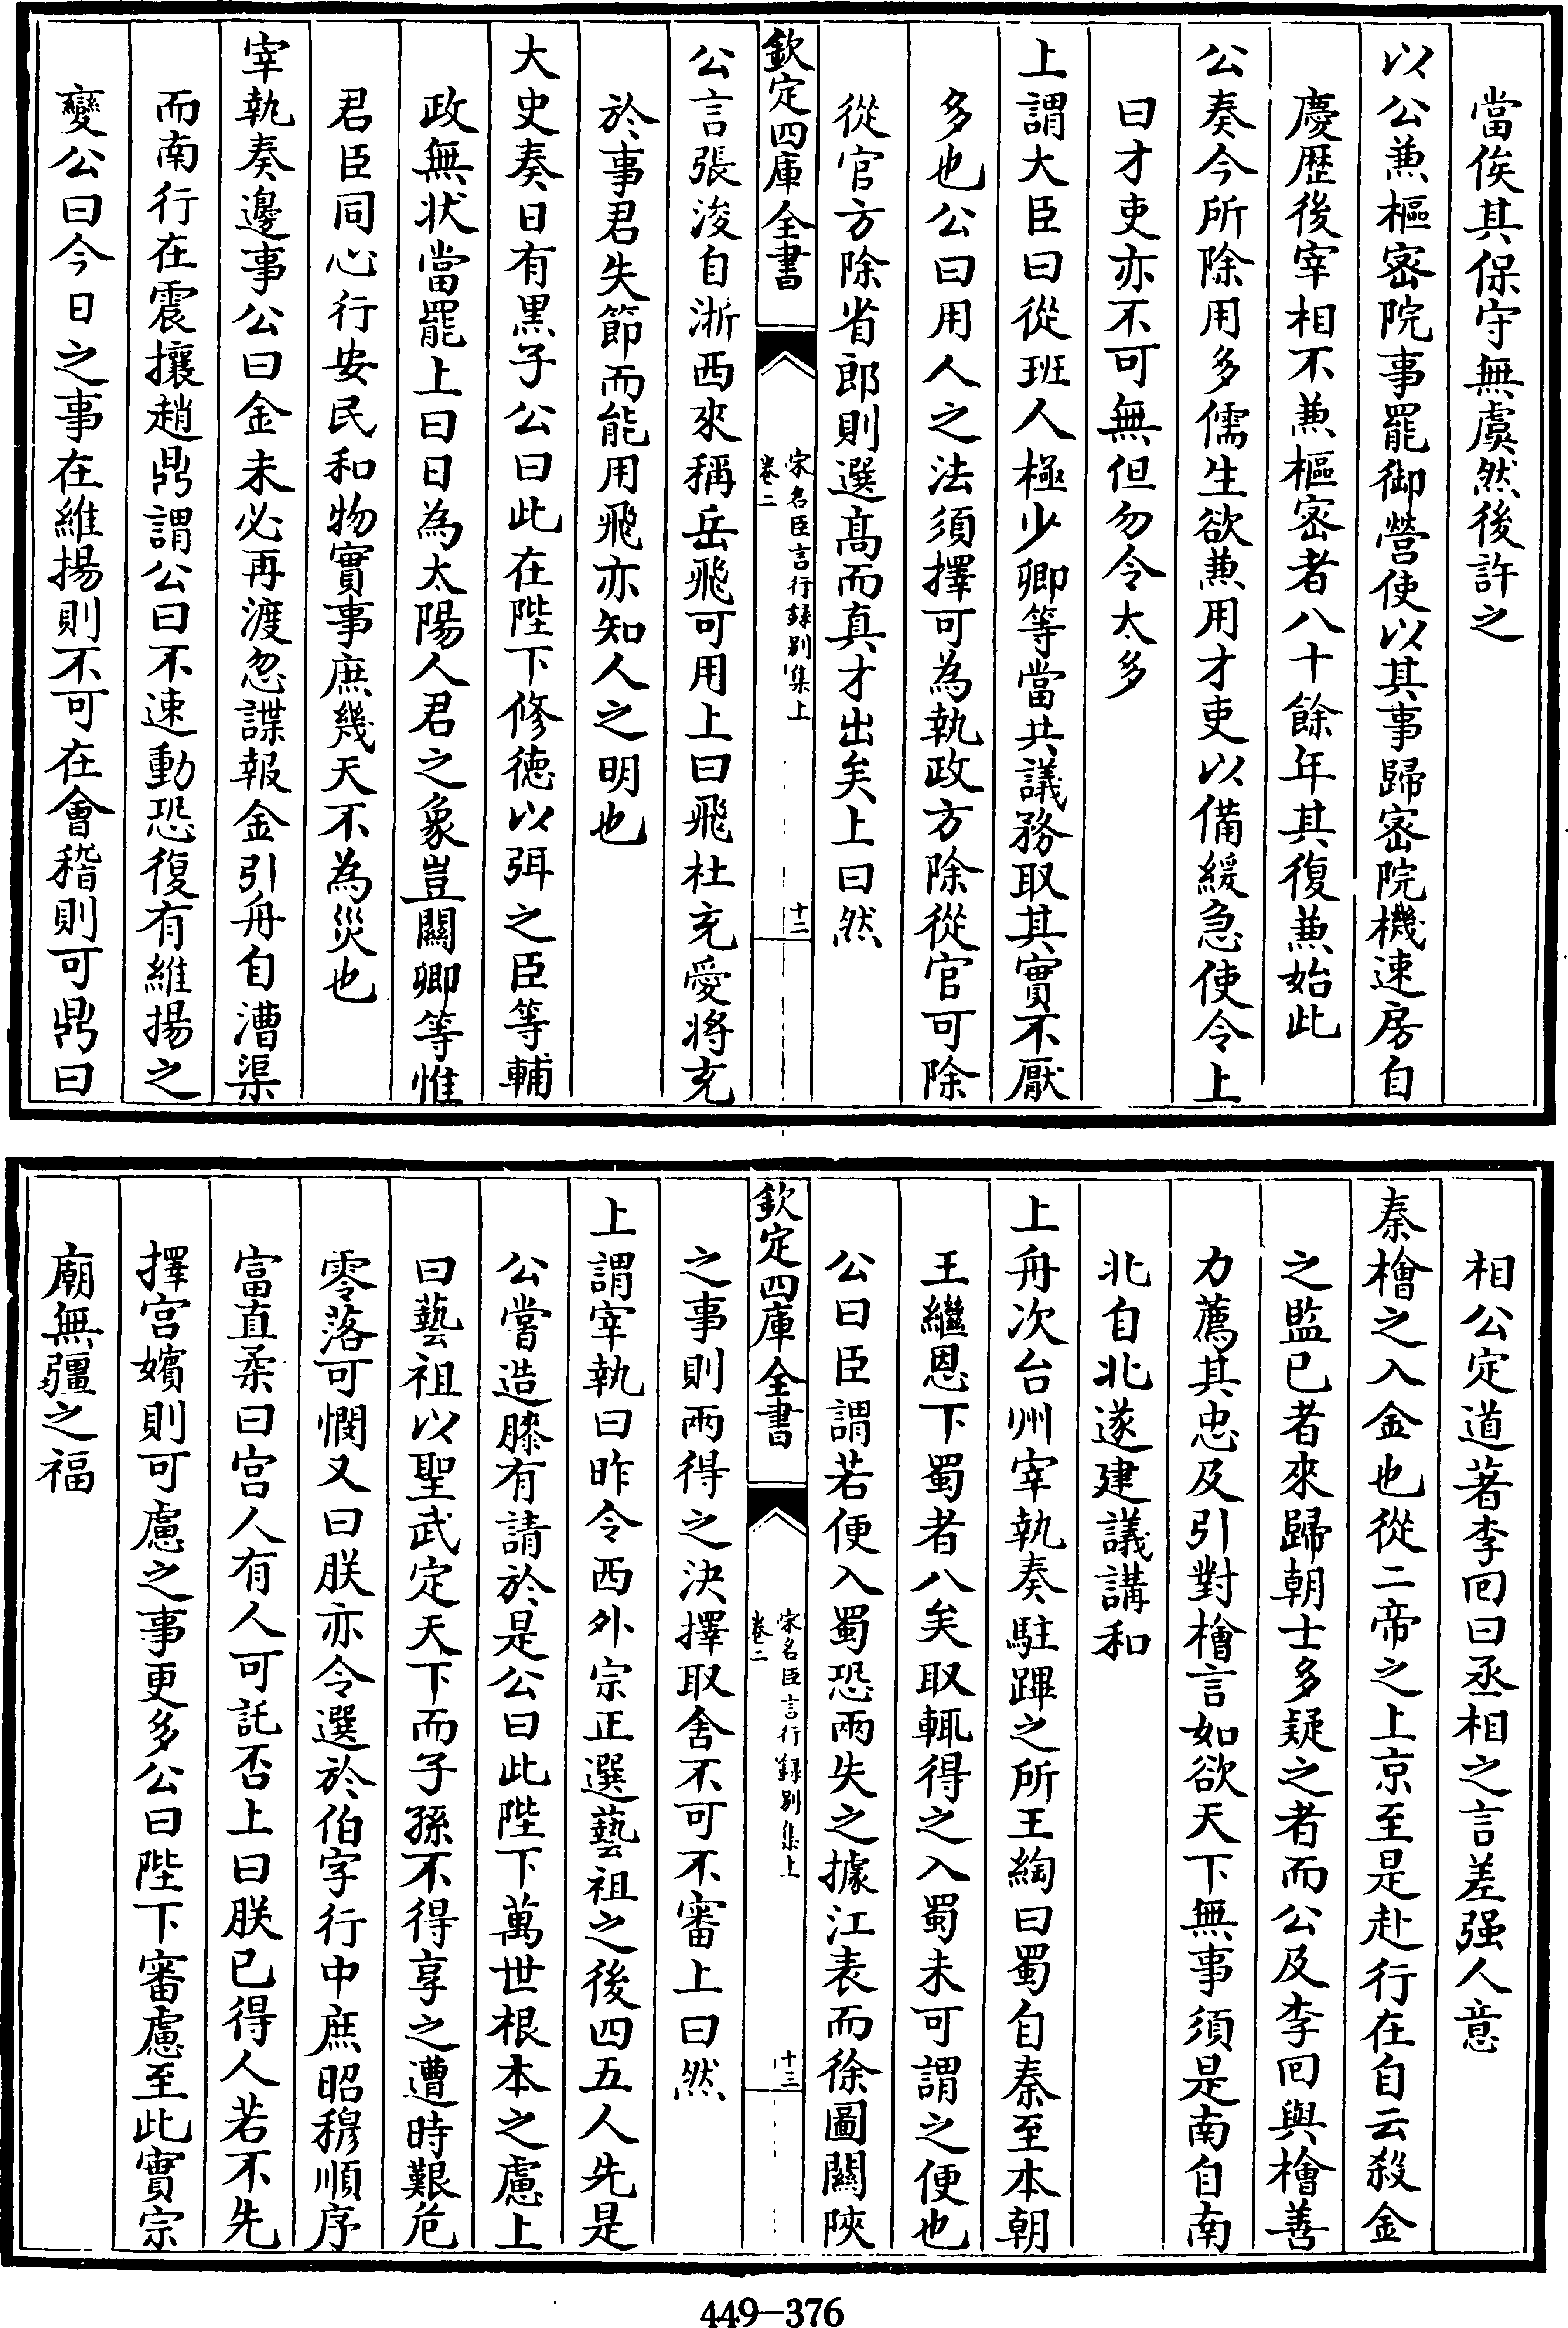 當俟其保守無虞然後許之
以公兼樞密院事罷御營使以其事歸密院機速房自
慶歴後宰相不兼樞密者八十餘年其復兼始此
公奏今所除用多儒生欲兼用才吏以備緩急使令上
曰才吏亦不可無但勿令太多
上謂大臣曰從班人極少卿等當共議務取其實不厭
多也公曰用人之法須擇可為執政方除從官可除
從官方除省郎則選髙而真才出矣上曰然
欽定四庫全書
宋名臣言行録别集上
卷二
十二
公言張浚自浙西來稱岳飛可用上曰飛杜充愛將充
於事君失節而能用飛亦知人之明也
大史奏日有黒子公曰此在陛下修徳以弭之臣等輔
政無状當罷上曰日為太陽人君之象豈關卿等惟
君臣同心行安民和物實事庶幾天不為災也
宰執奏邊事公曰金未必再渡忽諜報金引舟自漕渠
而南行在震攘趙鼎謂公曰不速動恐復有維揚之
變公曰今日之事在維揚則不可在會稽則可鼎曰
相公定道著李回曰丞相之言差强人意
秦檜之入金也從二帝之上京至是赴行在自云殺金
之監已者來歸朝士多疑之者而公及李回與檜善
力薦其忠及引對檜言如欲天下無事須是南自南
北自北遂建議講和
上舟次台州宰執奏駐蹕之所王綯曰蜀自秦至本朝
王繼恩下蜀者八矣取輒得之入蜀未可謂之便也
公曰臣謂若便入蜀恐兩失之據江表而徐圖關陜
欽定四庫全書
宋名臣言行録别集上
卷二
十三
之事則兩得之決擇取舍不可不審上曰然
上謂宰執曰昨令西外宗正選藝祖之後四五人先是
公嘗造膝有請於是公曰此陛下萬世根本之慮上
曰藝祖以聖武定天下而子孫不得享之遭時艱危
零落可憫又曰朕亦令選於伯字行中庶昭穆順序
富直柔曰宫人有人可託否上曰朕已得人若不先
擇宫嬪則可慮之事更多公曰陛下審慮至此實宗
廟無疆之福
449-376